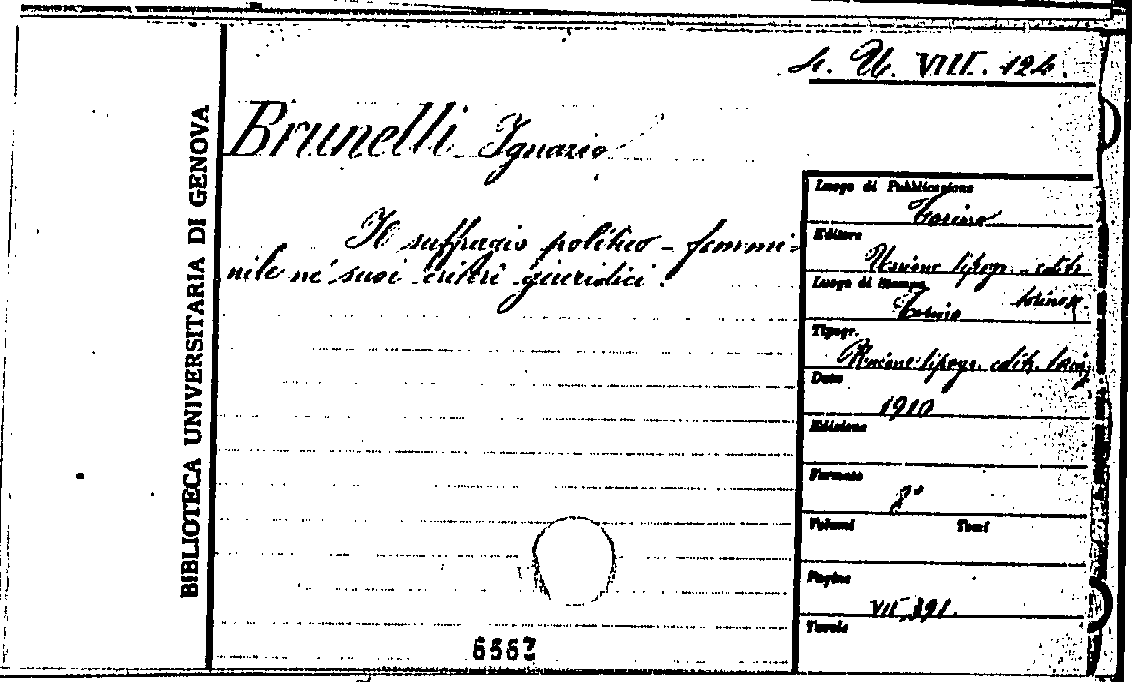 BIBLIOTECA UNIVERSITARIA DI GENOVA
4. U. VIII. 124.
Brunelli Ignazio
Il suffragio politico - femmi=
nile ne' suoi criteri giuridici.
Luogo di Pubblicazione
Torino
Editore
Unione tipogr. editr.
Luogo di stampa
torinese
Torino
Tipogr.
Unione tipogr. editr.
Data
1910
Edizione
Formato
8°
Volumi Tomi
Pagine
VII, 391.
Tavole
6567